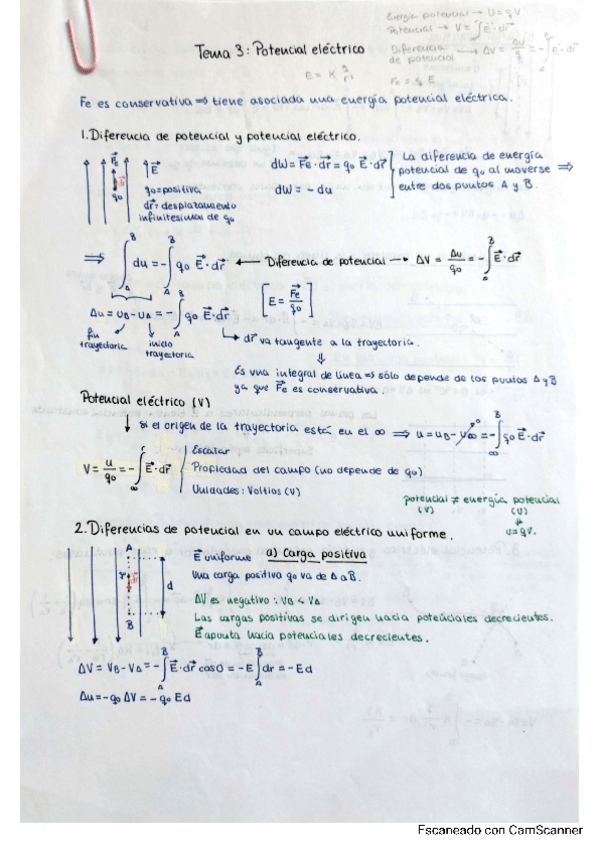 Energía potencial → U = qV
Potencial → V = ∫E·dr
Tema 3: Potencial eléctrico
Diferencia de potencial → ΔV = Δu/q₀ = -∫E·dr
E = K q/r²
Fe = q E
Fe es conservativa ⇒ tiene asociada una energía potencial eléctrica.
1. Diferencia de potencial y potencial eléctrico.
Fe
dr
q₀
E
q₀=positiva
dr: desplazamiento
infinitesimal de q₀
dW = Fe · dr = q₀ E · dr
dW = - du
La diferencia de energía
potencial de q₀ al moverse ⇒
entre dos puntos A y B.
⇒ ∫_A^B du = -∫_A^B q₀ E · dr ← Diferencia de potencial → ΔV = Δu/q₀ = -∫_A^B E · dr
[E = Fe/q₀]
Δu = u_B - u_A = -∫_A^B q₀ E · dr
fin
trayectoria
inicio
trayectoria
dr va tangente a la trayectoria.
⇓
Es una integral de línea ⇒ sólo depende de los puntos A y B
ya que Fe es conservativa.
Potencial eléctrico (V)
↓ si el origen de la trayectoria está en el ∞ ⇒ u = u_B - u_∞⁰ = -∫_∞^B q₀ E · dr
V = u/q₀ = -∫_∞^r E · dr
Escalar
Propiedad del campo (no depende de q₀)
Unidades: Voltios (V)
potencial ≠ energía potencial
(V) (U)
u = qV.
2. Diferencias de potencial en un campo eléctrico uniforme.
A
dr
B
d
E uniforme a) Carga positiva
Una carga positiva q₀ va de A a B.
ΔV es negativo: V_B < V_A
Las cargas positivas se dirigen hacia potenciales decrecientes.
E apunta hacia potenciales decrecientes.
ΔV = V_B - V_A = -∫_A^B E · dr cos0 = -E∫_A^B dr = -Ed
Δu = -q₀ ΔV = -q₀ Ed
Escaneado con CamScanner